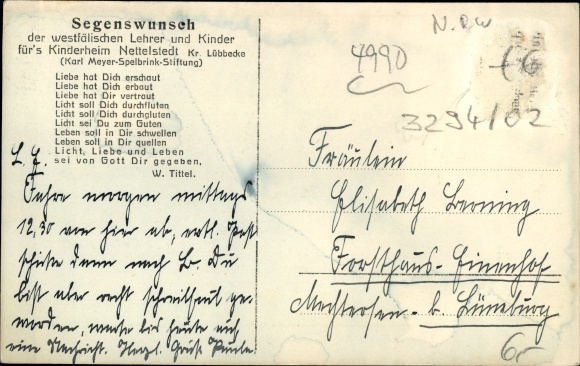 Segenswunsch
der westfälischen Lehrer und Kinder
für's Kinderheim Nettelstedt Kr. Lübbecke
(Karl Meyer-Spelbrink-Stiftung)
Liebe hat Dich erschaut
Liebe hat Dich erbaut
Liebe hat Dir vertraut
Licht soll Dich durchfluten
Licht soll Dich durchgluten
Licht sei Du zum Guten
Leben soll in Dir schwellen
Leben soll in Dir quellen
Licht, Liebe und Leben
sei von Gott Dir gegeben.
W. Tittel.
L. E.
Fahre morgen mittags
12,30 von hier ab, evtl. Post
schicke dann nach B. Du
bist aber recht schreibfaul ge-
worden, warte bis heute auf
eine Nachricht. Herzl. Gruß Paula
N.RW
4990
3294/02
Fräulein
Elisabeth Berning
Forsthaus-Einenhof
Mechtersen b. Lüneburg
6,-